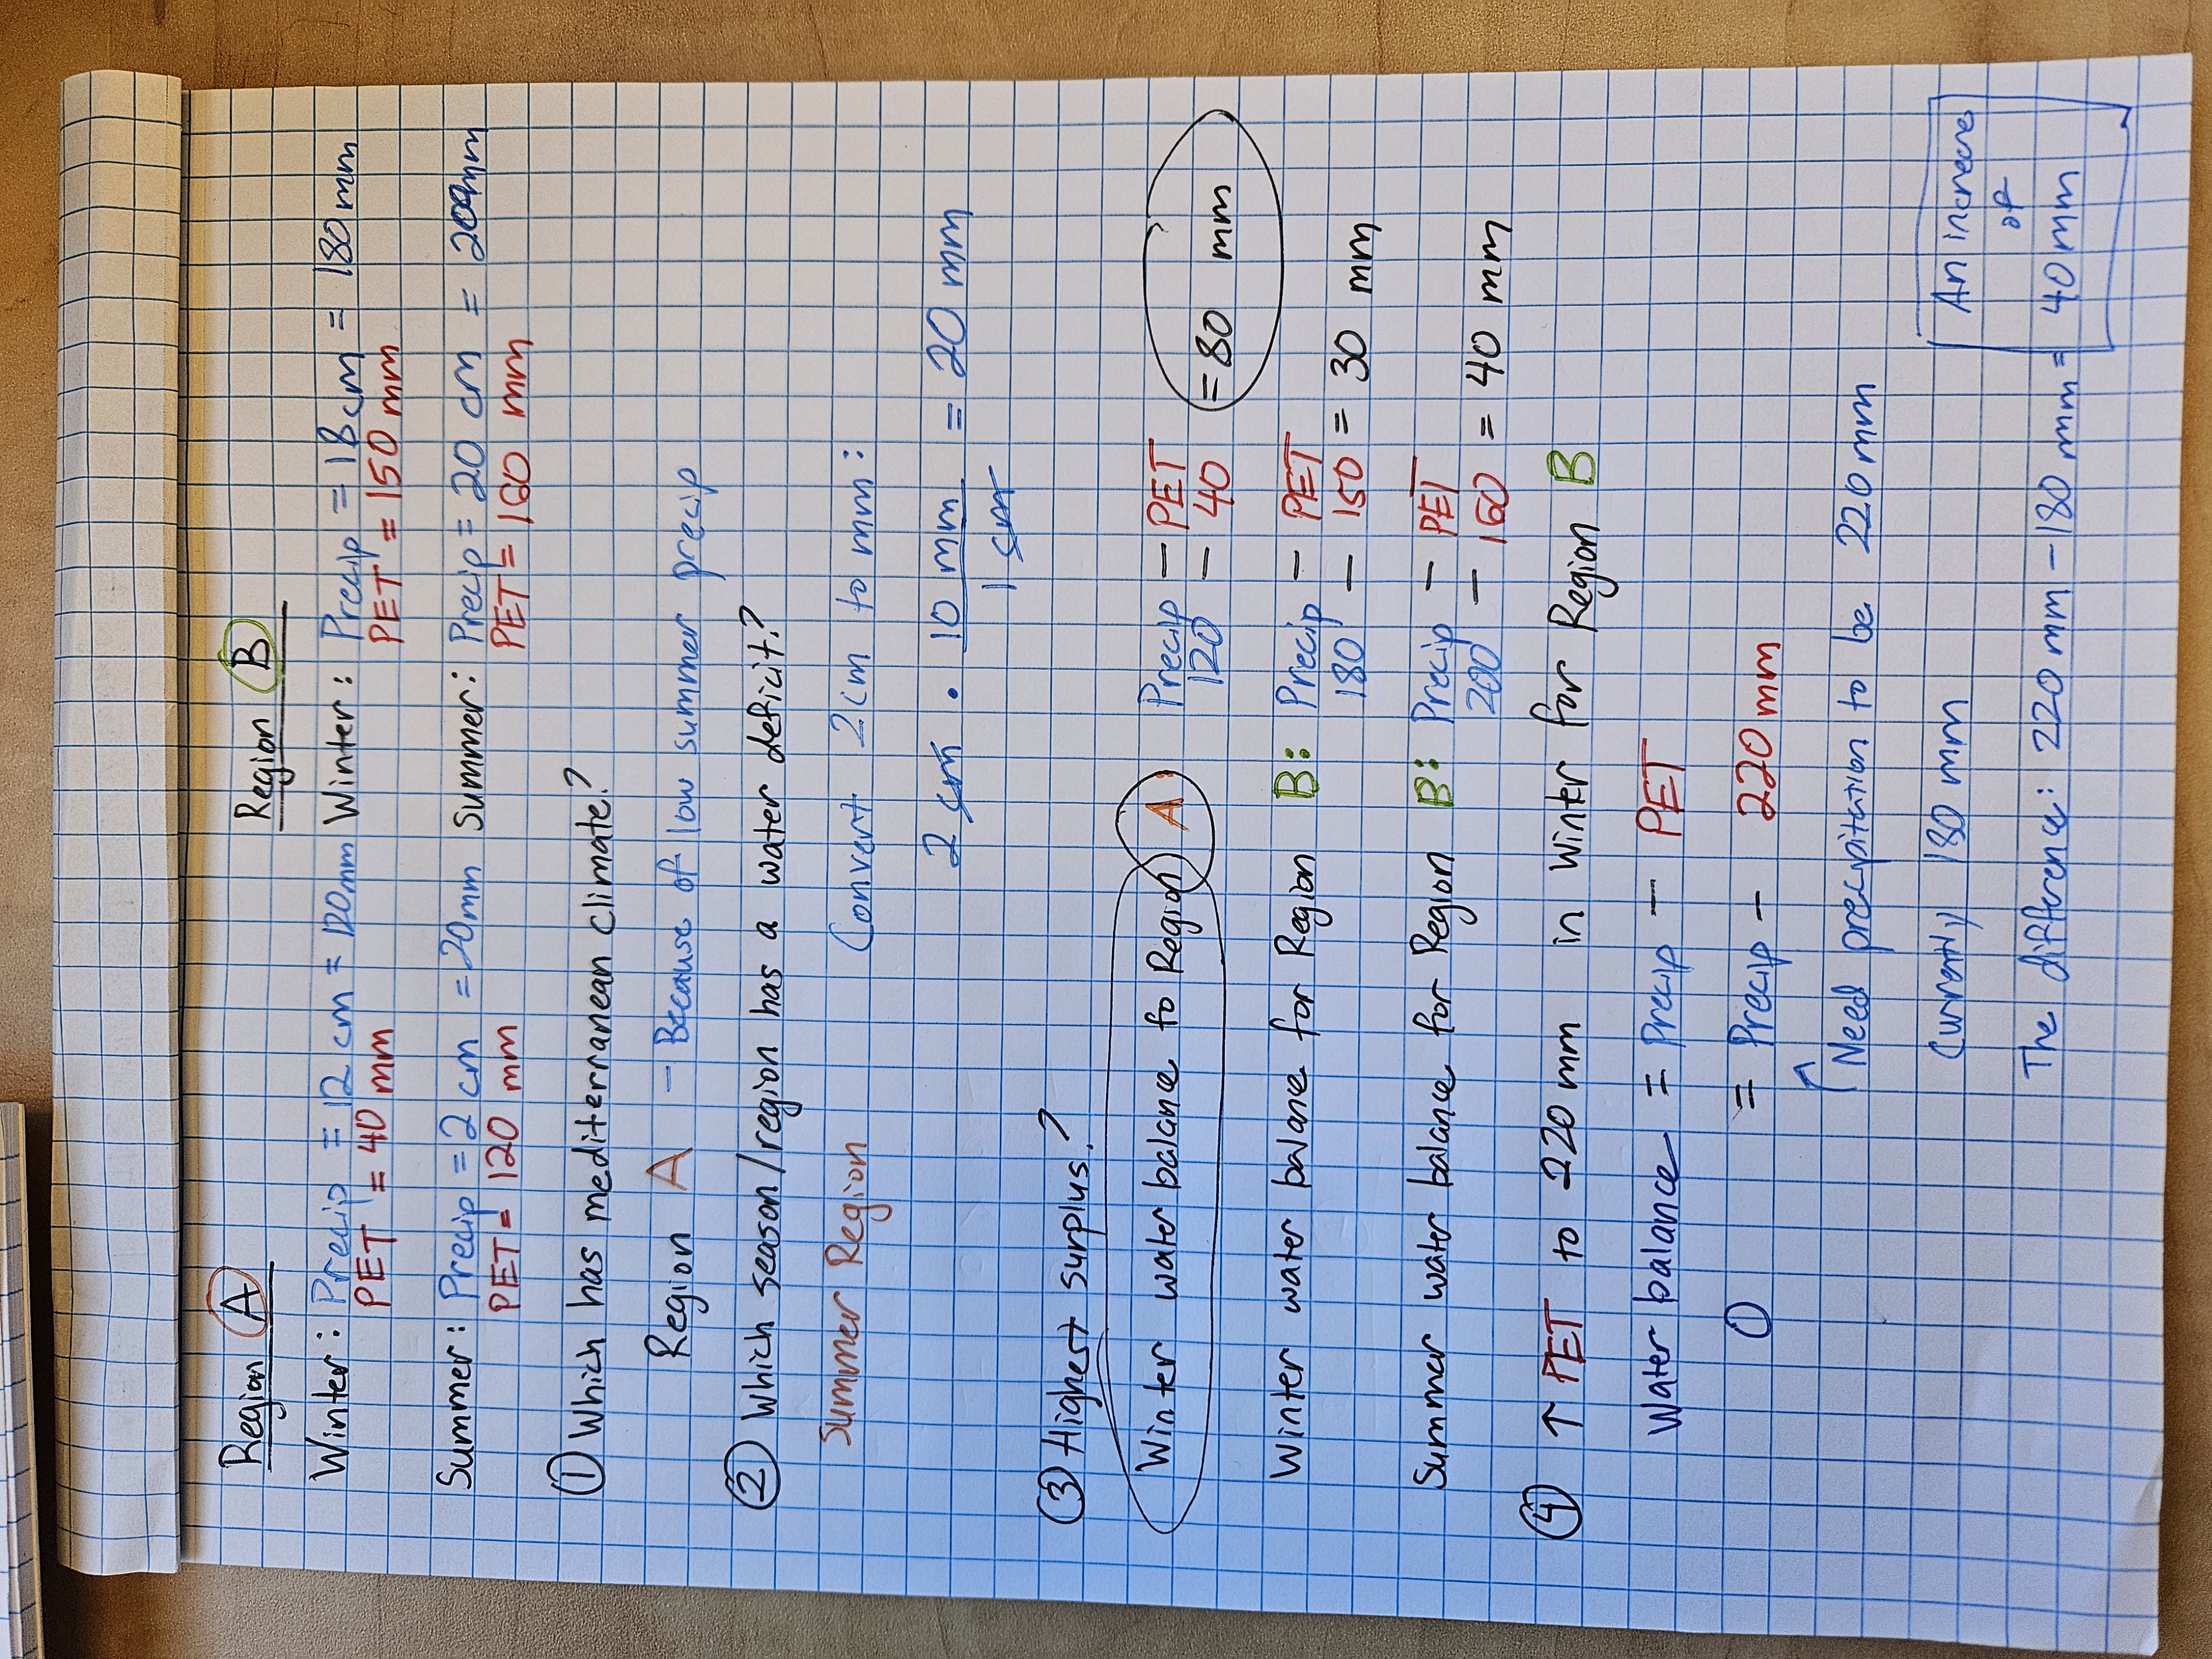 Region A
Winter: Precip = 12 cm = 120mm
PET = 40 mm
Summer: Precip = 2 cm = 20mm
PET = 120 mm
Region B
Winter: Precip = 18 cm = 180 mm
PET = 150 mm
Summer: Precip = 20 cm = 200mm
PET = 160 mm
① Which has mediterranean climate?
Region A - Because of low summer precip
② Which season/region has a water deficit?
Summer Region Convert 2cm to mm:
2 cm · 10 mm / 1 cm = 20 mm
③ Highest surplus?
Winter water balance to Region A: Precip - PET
120 - 40 = 80 mm
Winter water balance for Region B: Precip - PET
180 - 150 = 30 mm
Summer water balance for Region B: Precip - PET
200 - 160 = 40 mm
④ ↑ PET to 220 mm in winter for Region B
Water balance = Precip - PET
0 = Precip - 220 mm
↑ Need precipitation to be 220 mm
Currently 180 mm
The difference: 220 mm - 180 mm = 40 mm
An increase
of